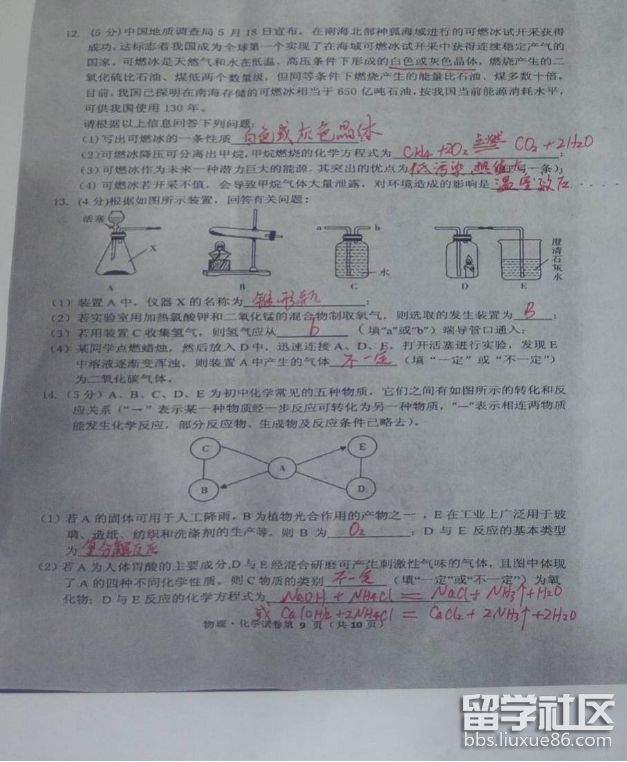 12. (5 分) 中国地质调查局 5 月 18 日宣布，在南海北部神狐海域进行的可燃冰试开采获得
成功，达标志着我国成为全球第一个实现了在海域可燃冰试开采中获得连续稳定产气的
国家。可燃冰是天然气和水在低温、高压条件下形成的白色或灰色晶体，燃烧产生的二
氧化硫比石油、煤低两个数量级，但同等条件下燃烧产生的能量比石油、煤多数十倍。
目前，我国已探明在南海存储的可燃冰相当于 650 亿吨石油，按我国当前能源消耗水平，
可供我国使用 130 年。
请根据以上信息回答下列问题：
(1) 写出可燃冰的一条性质 白色或灰色晶体
(2) 可燃冰降压可分离出甲烷，甲烷燃烧的化学方程式为 CH4 + 2O2 点燃 CO2 + 2H2O ；
(3) 可燃冰作为未来一种潜力巨大的能源，其突出的优点为 低污染 热值大 一条)；
(4) 可燃冰若开采不慎，会导致甲烷气体大量泄露，对环境造成的影响是 温室效应
13. (4 分) 根据如图所示装置，回答有关问题：
活塞
X
a b
水
澄清石灰水
A B C D E
(1) 装置 A 中，仪器 X 的名称为 锥形瓶 ；
(2) 若实验室用加热氯酸钾和二氧化锰的混合物制取氧气，则选取的发生装置为 B ；
(3) 若用装置 C 收集氢气，则氢气应从 b (填"a"或"b") 端导管口通入；
(4) 某同学点燃蜡烛，然后放入 D 中，迅速连接 A、D、E，打开活塞进行实验，发现 E
中溶液逐渐变浑浊，则装置 A 中产生的气体 不一定 (填 "一定" 或 "不一定")
为二氧化碳气体。
14. (5 分) A、B、C、D、E 为初中化学常见的五种物质，它们之间有如图所示的转化和反
应关系 ("→" 表示某一种物质经一步反应可转化为另一种物质，"—"表示相连两物质
能发生化学反应，部分反应物、生成物及反应条件已略去)。
C E
A
B D
(1) 若 A 的固体可用于人工降雨，B 为植物光合作用的产物之一，E 在工业上广泛用于玻
璃、造纸、纺织和洗涤剂的生产等，则 B 为 O2 ；D 与 E 反应的基本类型
为 复分解反应
(2) 若 A 为人体胃酸的主要成分，D 与 E 经混合研磨可产生刺激性气味的气体，且图中体现
了 A 的四种不同化学性质，则 C 物质的类别 不一定 (填"一定"或"不一定") 为氧
化物；D 与 E 反应的化学方程式为 NaOH + NH4Cl = NaCl + NH3↑ + H2O
或 Ca(OH)2 + 2NH4Cl = CaCl2 + 2NH3↑ + 2H2O
物理·化学试卷第 9 页 (共 10 页)
留学社区
bbs.liuxue86.com